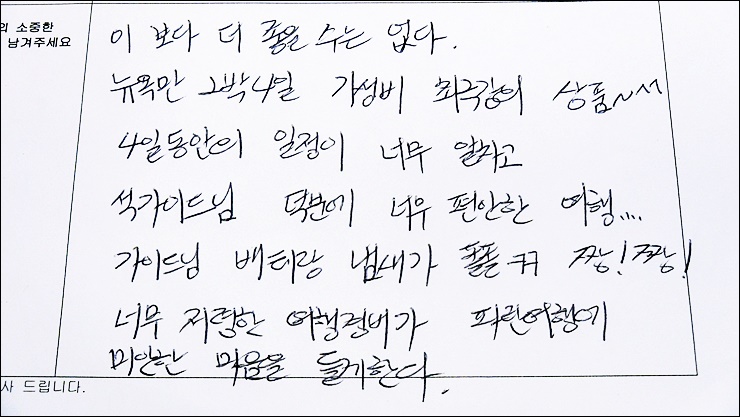 의 소중한
남겨주세요
이 보다 더 좋을 수는 없다.
뉴욕만 2박4일 가성비 최극강의 상품~서
4일동안의 일정이 너무 알차고
석가이드님 덕분에 너무 편안한 여행....
가이드님 배터랑 냄새가 풀풀ㅋㅋ 짱! 짱!
너무 저렴한 여행경비가 파란여행에
미안한 마음을 들게한다.
사 드립니다.